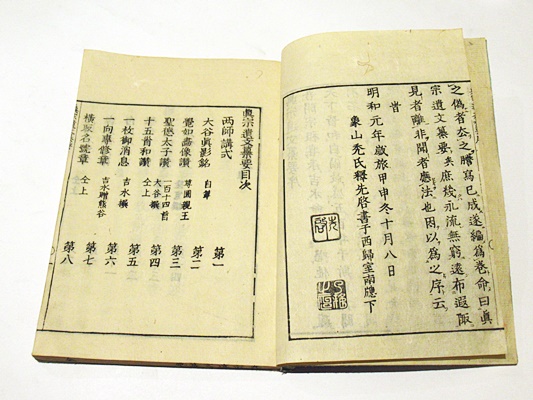 之偽者去之謄寫已成遂編為卷命曰眞
宗遺文纂要矣庶幾永流無窮遠布遐陬
見者離非聞者應法也因以為之序云
旹
明和元年歲旅甲申冬十月八日
象山禿氏釋先啓書于西歸室南牕下
先啓
眞宗遺文纂要目次
兩師講式 第一
大谷眞影銘 自筆 第二
覺如畵像讚 尊圓親王 第三
聖德太子讚 一百十四首 大谷撰 第四
十五首和讚 仝上 第五
一枚御消息 吉水撰 第六
一向專修章 吉水贈熊谷 第七
名號章 仝上 第八